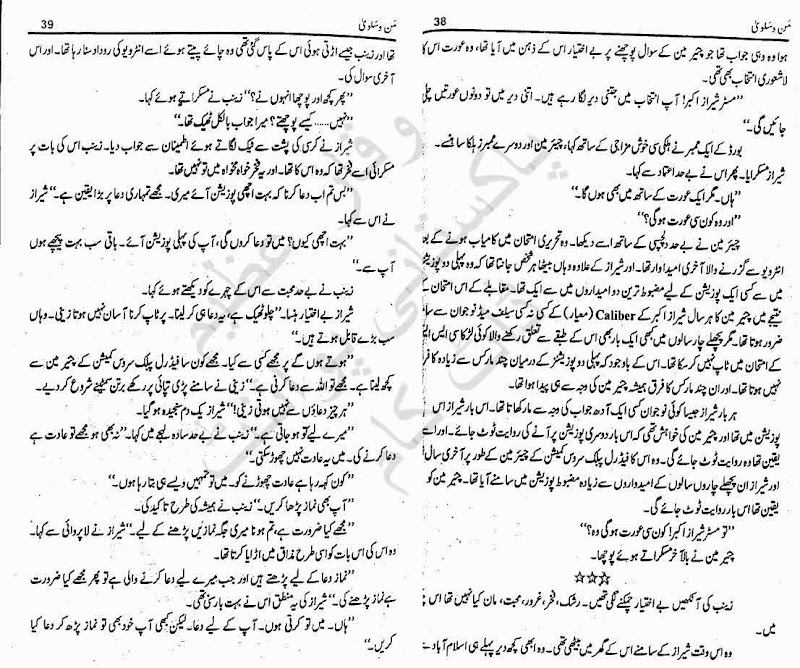 38
من و سلویٰ
ہوا وہ وہی جواب تھا جو چیئر مین کے سوال پوچھنے پر بے اختیار اس کے ذہن میں آیا تھا، وہ عورت اس کا
لاشعوری انتخاب بھی تھی۔
’’مسٹر شیراز اکبر! آپ انتخاب میں جتنی دیر لگا رہے ہیں۔ اتنی دیر میں تو دونوں عورتیں چلی
جائیں گی۔‘‘
بورڈ کے ایک ممبر نے ہلکی سی خوش مزاجی کے ساتھ کہا، چیئر مین اور دوسرے ممبرز ہلکا سا ہنسے۔
شیراز مسکرایا۔ پھر اس نے بے حد اعتماد سے کہا۔
’’ہاں۔ مگر ایک عورت کے ساتھ میں بھی ہوں گا۔‘‘
’’اور وہ کون سی عورت ہو گی؟‘‘
چیئر مین نے بے حد دلچسپی کے ساتھ اسے دیکھا۔ وہ تحریری امتحان میں کامیاب ہونے کے بعد
انٹرویو سے گزرنے والا آخری امیدوار تھا۔ اور شیراز کے علاوہ وہاں بیٹھا ہر شخص جانتا تھا کہ وہ پہلی دو پوزیشنز
میں سے کسی ایک پوزیشن کے لیے مضبوط ترین دو امیداروں میں سے ایک تھا۔ مقابلے کے اس امتحان کے
نتیجے میں چیئر مین کا ہر سال شیراز اکبر کے Caliber (معیار) کے کسی نہ کسی سیلف میڈ نوجوان سے سامنا
ضرور ہوتا تھا۔ مگر پچھلے چار سالوں میں کبھی ایک بار بھی اس کے طبقے سے تعلق رکھنے والا کوئی لڑکا سی ایس ایس
کے امتحان میں ٹاپ نہیں کر سکا تھا۔ اس کے باوجود کہ پہلی دو پوزیشنز کے درمیان چند مارکس سے زیادہ کا فرق
نہیں ہوتا تھا۔ اور ان چند مارکس کا فرق ہمیشہ چیئر مین کی وجہ سے ہی پیدا ہوا تھا۔
ہر بار شیراز جیسا کوئی نوجوان کسی ایک آدھ جواب کی وجہ سے مار کھاتا تھا۔ اس بار شیراز اس
پوزیشن میں تھا اور چیئر مین کی خواہش تھی کہ اس بار دوسری پوزیشن پر آنے کی روایت ٹوٹ جائے۔ اور اسے
یقین تھا وہ ٹوٹ جائے گی۔ وہ اس کا فیڈرل پبلک سروس کمیشن کے چیئر مین کے طور پر آخری سال تھا
اور شیراز ان پچھلے چاروں سالوں کے امیدواروں سے زیادہ مضبوط پوزیشن میں سامنے آیا تھا۔ چیئر مین کو
یقین تھا اس بار روایت ٹوٹ جائے گی۔
’’تو مسٹر شیراز اکبر! کون سی عورت ہو گی وہ؟‘‘
چیئر مین نے بالآخر مسکراتے ہوئے پوچھا۔
☆☆☆
زینب کی آنکھیں بے اختیار چمکنے لگی تھیں۔ رشک، فخر، غرور، محبت، مان کیا نہیں تھا اس پل
میں۔
وہ اس وقت شیراز کے سامنے اس کے گھر میں بیٹھی تھی۔ وہ ابھی کچھ دیر پہلے ہی اسلام آباد سے
39
من و سلویٰ
تھا اور زینب جیسے اڑتی ہوئی اس کے پاس گئی تھی وہ چائے پیتے ہوئے اسے انٹرویو کی روداد سنا رہا تھا۔ اور اس
آخری سوال کی۔
’’پھر کچھ اور پوچھا انہوں نے؟‘‘ زینب نے مسکراتے ہوئے کہا۔
’’نہیں...... کیسے پوچھتے؟ میرا جواب بالکل ٹھیک تھا۔‘‘
شیراز نے کرسی کی پشت سے ٹیک لگاتے ہوئے اطمینان سے جواب دیا۔ زینب اس کی بات پر
مسکرائی اسے فخر تھا کہ وہ اس کا تھا۔ اور یہ فخر خوامخواہ میں تو نہیں تھا۔
’’بس تم اب دعا کرنا کہ بہت اچھی پوزیشن آئے میری۔ مجھے تمہاری دعا پر بڑا یقین ہے۔‘‘ شیراز
نے اس سے کہا۔
’’بہت اچھی کیوں؟ میں تو دعا کروں گی، آپ کی پہلی پوزیشن آئے۔ باقی سب بہت پیچھے ہوں
آپ سے۔‘‘
زینب نے بے حد محبت سے اس کے چہرے کو دیکھتے ہوئے کہا۔
شیراز بے اختیار ہنسا۔ ’’چلو ٹھیک ہے، یہ دعا ہی کر لینا۔ پر ٹاپ کرنا آسان نہیں ہوتا زینی۔ وہاں
سب بڑے قابل ہوتے ہیں۔‘‘
’’ہوتے ہوں گے پر مجھے کسی سے کیا۔ مجھے کون سا فیڈرل پبلک سروس کمیشن کے چیئر مین سے
کچھ لینا ہے۔ مجھے تو اللہ سے دعا کرنی ہے۔‘‘ زینی نے سامنے پڑی تپائی پر رکھے برتن سمیٹنے شروع کر دیے۔
’’ہر چیز دعاؤں سے نہیں ہوتی زینی!‘‘ شیراز یک دم سنجیدہ ہو گیا۔
’’میرے لیے تو ہو جاتی ہے۔‘‘ زینب نے بے حد سادہ لہجے میں کہا۔ ’’نہ بھی ہو مجھے تو عادت ہے
دعا کرنے کی۔ میں یہ عادت نہیں چھوڑ سکتی۔‘‘
’’کون کہہ رہا ہے عادت چھوڑنے کو۔ میں تو تمہیں ویسے ہی بتا رہا ہوں۔‘‘
’’آپ بھی نماز پڑھا کریں۔‘‘ زینب نے ہمیشہ کی طرح تاکید کی۔
’’مجھے کیا ضرورت ہے، تم ہو نا میری جگہ نمازیں پڑھنے کے لیے۔‘‘ شیراز نے لاپروائی سے کہا۔
وہ اس کی اس بات کو اسی طرح مذاق میں اڑایا کرتا تھا۔
’’نماز دعا کے لیے پڑھتے ہیں اور جب میرے لیے دعا کرنے والی ہے تو پھر مجھے کیا ضرورت
ہے نماز پڑھنے کی۔‘‘ شیراز کی یہ منطق اس نے بہت بار سنی تھی۔
’’ہاں۔ میں تو کرتی ہوں۔ آپ کے لیے دعا۔ لیکن کبھی آپ خود بھی تو نماز پڑھ کر دعا کیا
کریں۔‘‘